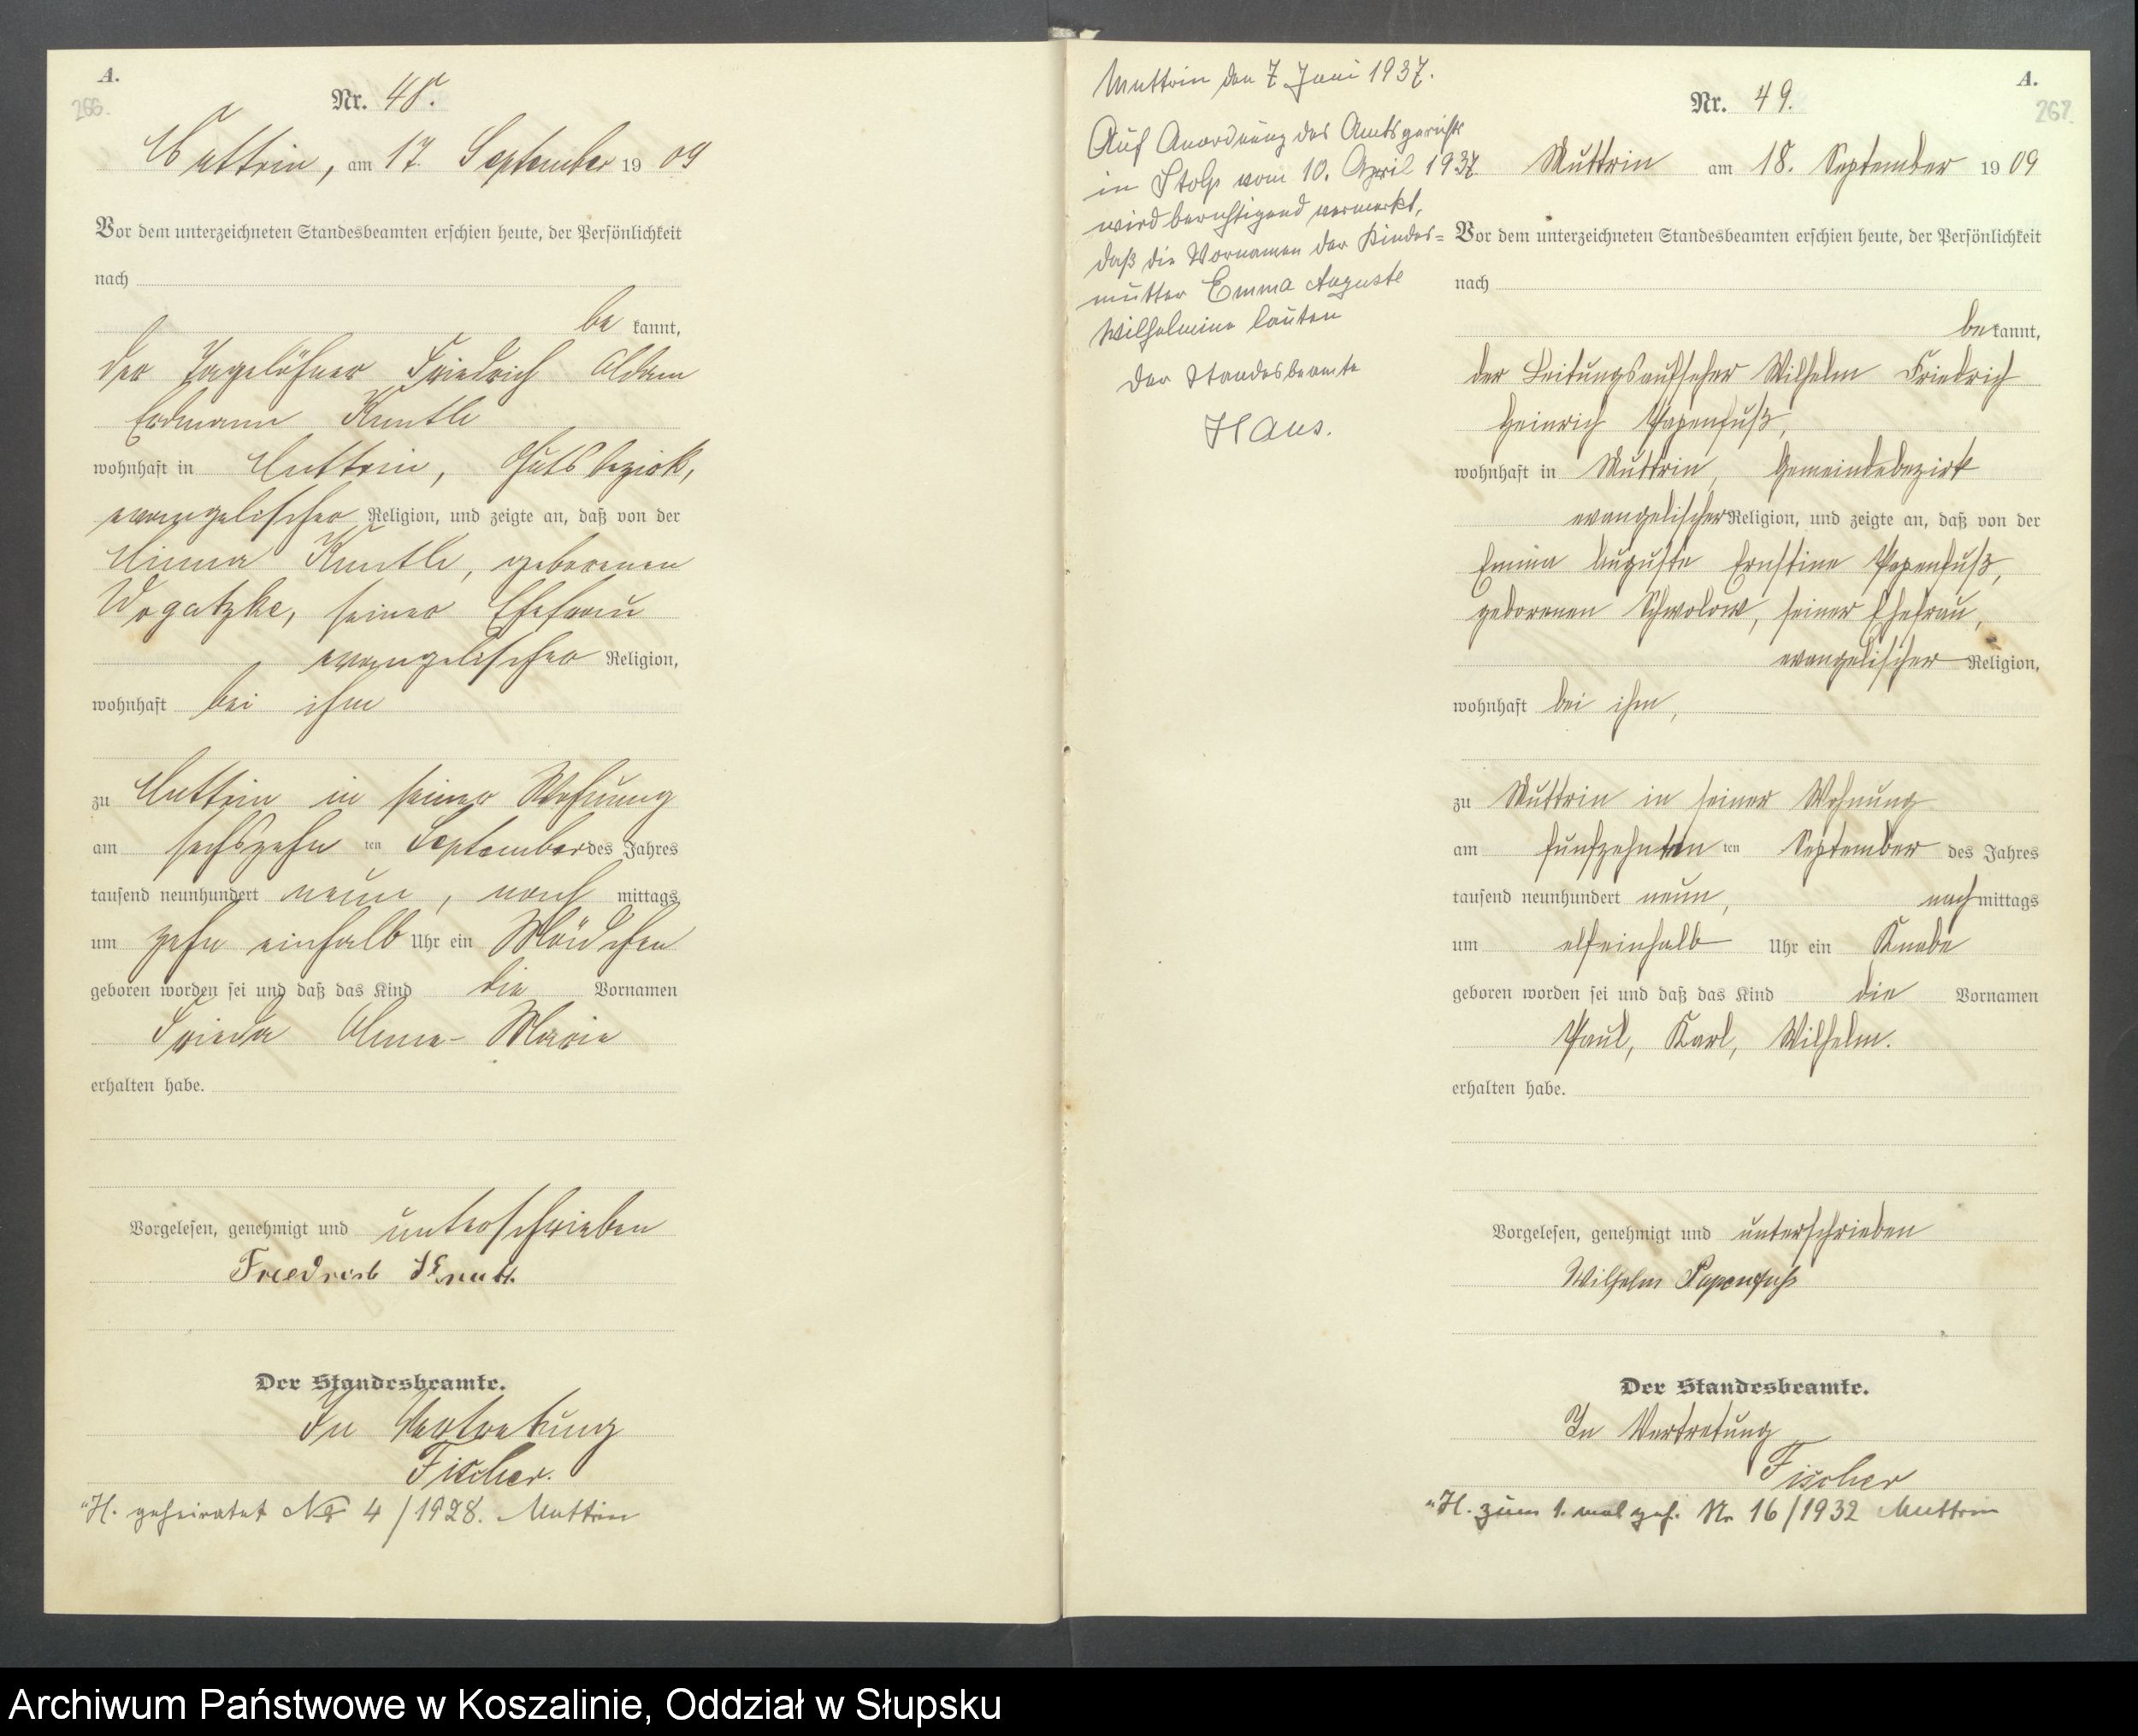 A.
266.
Nr. 48.
Muttrin, am 17. September 19 09
Vor dem unterzeichneten Standesbeamten erschien heute, der Persönlichkeit
nach
be kannt,
der Tagelöhner Friedrich Adam
Erdmann
wohnhaft in Muttrin, Gutsbezirk,
evangelischer Religion, und zeigte an, daß von der
Minna geborenen
Wogatzke, seiner Ehefrau
evangelischer Religion,
wohnhaft bei ihm
zu Muttrin in seiner Wohnung
am sechszehn ten September des Jahres
tausend neunhundert neun, nach mittags
um zehn einhalb Uhr ein Mädchen
geboren worden sei und daß das Kind die Vornamen
Frieda Anna-Marie
erhalten habe.
Vorgelesen, genehmigt und unterschrieben
Friedrich
Der Standesbeamte.
In Vertretung
Fischer.
"H. geheiratet No 4/1928. Muttrin
Muttrin den 7 Juni 1937.
Auf Anordnung des Amtsgerichts
in Stolp vom 10. April 1937
wird berichtigend vermerkt,
daß die Vornamen der Kindes=
mutter Emma Auguste
Wilhelmine lauten
Der Standesbeamte
Haus.
A.
267.
Nr. 49.
Muttrin am 18. September 19 09
Vor dem unterzeichneten Standesbeamten erschien heute, der Persönlichkeit
nach
be kannt,
der Leitungsaufseher Wilhelm Friedrich
Heinrich Papenfuß,
wohnhaft in Muttrin, Gemeindebezirk
evangelischer Religion, und zeigte an, daß von der
Emma Auguste Ernstine Papenfuß,
geborenen Schwolow, seiner Ehefrau,
evangelischer Religion,
wohnhaft bei ihm,
zu Muttrin in seiner Wohnung
am fünfzehnten ten September des Jahres
tausend neunhundert neun, nach mittags
um elfeinhalb Uhr ein Knabe
geboren worden sei und daß das Kind die Vornamen
Paul, Karl, Wilhelm.
erhalten habe.
Vorgelesen, genehmigt und unterschrieben
Wilhelm Papenfuß
Der Standesbeamte.
In Vertretung
Fischer
"H. zum 1. mal geh. Nr 16/1932 Muttrin
Archiwum Państwowe w Koszalinie, Oddział w Słupsku